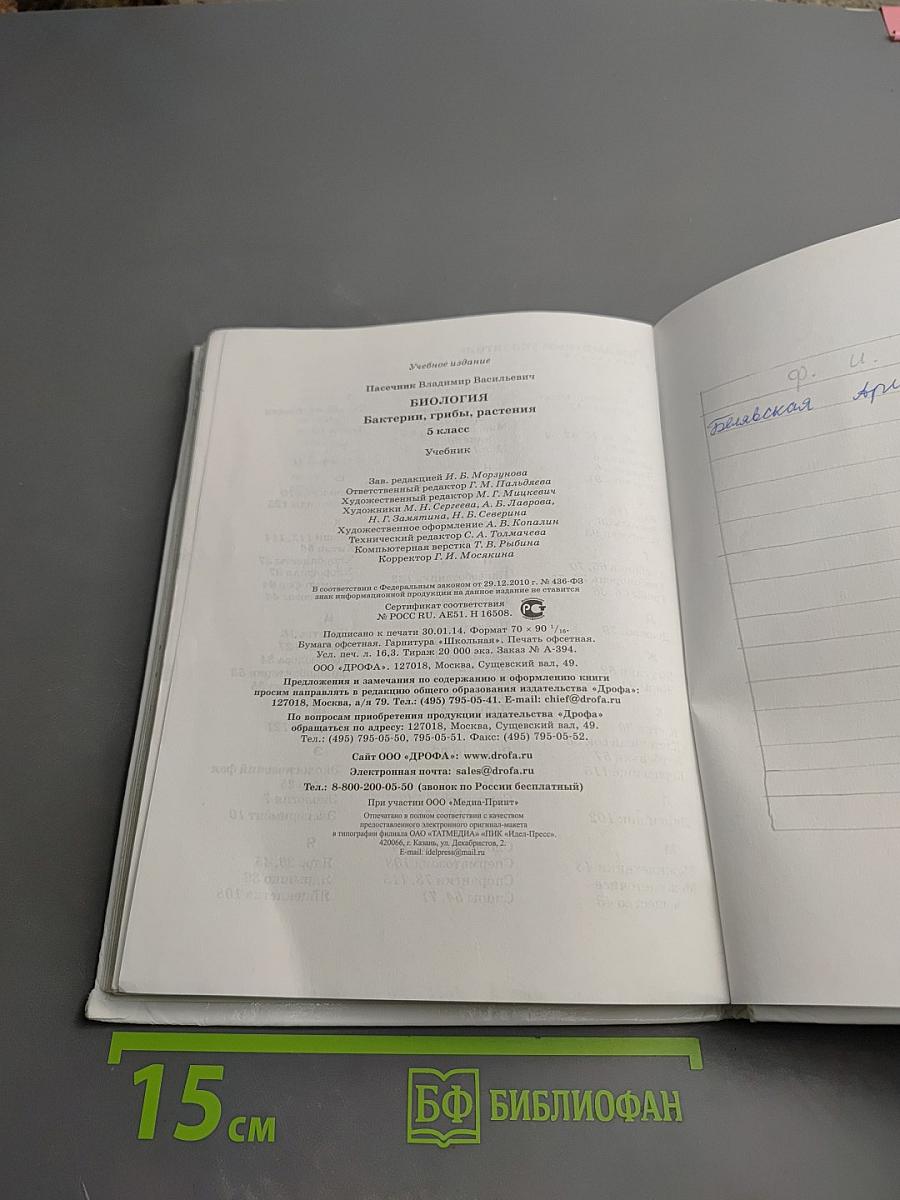 Учебное издание
Пасечник Владимир Васильевич
БИОЛОГИЯ
Бактерии, грибы, растения
5 класс
Учебник
Зав. редакцией И. Б. Морзунова
Ответственный редактор Г. М. Пальдяева
Художественный редактор М. Г. Мицкевич
Художники М. Н. Сергеева, А. Б. Лаврова,
Н. Г. Замятина, Н. Б. Северина
Художественное оформление А. В. Копалин
Технический редактор С. А. Толмачева
Компьютерная верстка Т. В. Рыбина
Корректор Г. И. Мосякина
В соответствии с Федеральным законом от 29.12.2010 г. № 436-ФЗ
знак информационной продукции на данное издание не ставится
Сертификат соответствия
№ РОСС RU. АЕ51. Н 16508.
Подписано к печати 30.01.14. Формат 70 × 90 1/16.
Бумага офсетная. Гарнитура «Школьная». Печать офсетная.
Усл. печ. л. 16,3. Тираж 20 000 экз. Заказ № А-394.
ООО «ДРОФА». 127018, Москва, Сущевский вал, 49.
Предложения и замечания по содержанию и оформлению книги
просим направлять в редакцию общего образования издательства «Дрофа»:
127018, Москва, а/я 79. Тел.: (495) 795-05-41. E-mail: chief@drofa.ru
По вопросам приобретения продукции издательства «Дрофа»
обращаться по адресу: 127018, Москва, Сущевский вал, 49.
Тел.: (495) 795-05-50, 795-05-51. Факс: (495) 795-05-52.
Сайт ООО «ДРОФА»: www.drofa.ru
Электронная почта: sales@drofa.ru
Тел.: 8-800-200-05-50 (звонок по России бесплатный)
При участии ООО «Медиа-Принт»
Отпечатано в полном соответствии с качеством
предоставленного электронного оригинал-макета
в типографии филиала ОАО «ТАТМЕДИА» «ПИК «Идел-Пресс».
420066, г. Казань, ул. Декабристов, 2.
E-mail: idelpress@mail.ru
Ф. И.
Белявская Ари
15 см
БФ БИБЛИОФАН